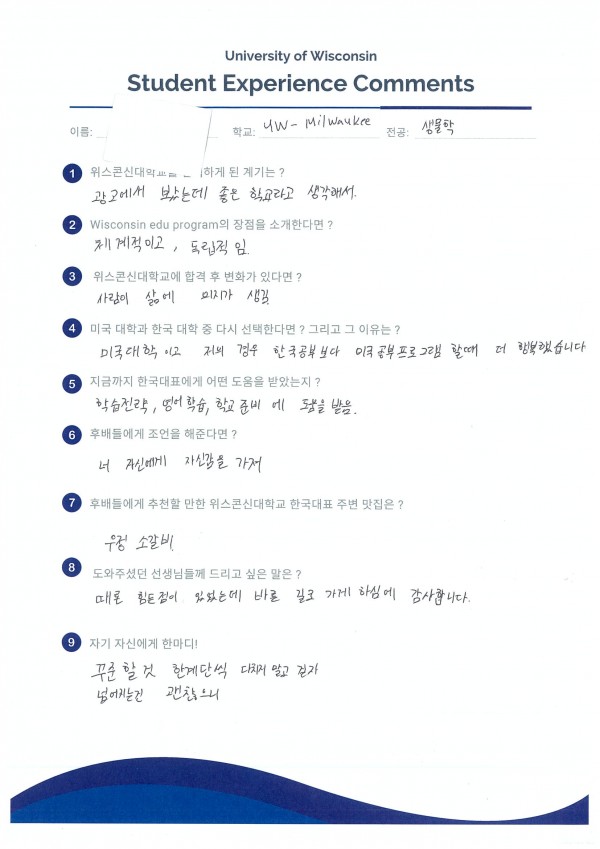 University of Wisconsin
Student Experience Comments
이름: 학교: UW- Milwaukee 전공: 생물학
1 위스콘신대학교를 하게 된 계기는 ?
광고에서 봤는데 좋은 학교라고 생각해서.
2 Wisconsin edu program의 장점을 소개한다면 ?
체계적이고, 독립적 임.
3 위스콘신대학교에 합격 후 변화가 있다면 ?
사람이 삶에 의지가 생김
4 미국 대학과 한국 대학 중 다시 선택한다면 ? 그리고 그 이유는 ?
미국대학 이고 저의 경우 한국공부보다 미국공부프로그램 할때 더 행복했습니다
5 지금까지 한국대표에게 어떤 도움을 받았는지 ?
학습전략, 영어학습, 학교 준비 에 도움을 받음.
6 후배들에게 조언을 해준다면 ?
너 자신에게 자신감을 가져
7 후배들에게 추천할 만한 위스콘신대학교 한국대표 주변 맛집은 ?
우정 소갈비.
8 도와주셨던 선생님들께 드리고 싶은 말은 ?
때론 힘든점이 있었는데 바로 길로 가게 하심에 감사합니다.
9 자기 자신에게 한마디!
꾸준 할 것 한계단씩 다치지 말고 걷자
넘어지는건 괜찮으니